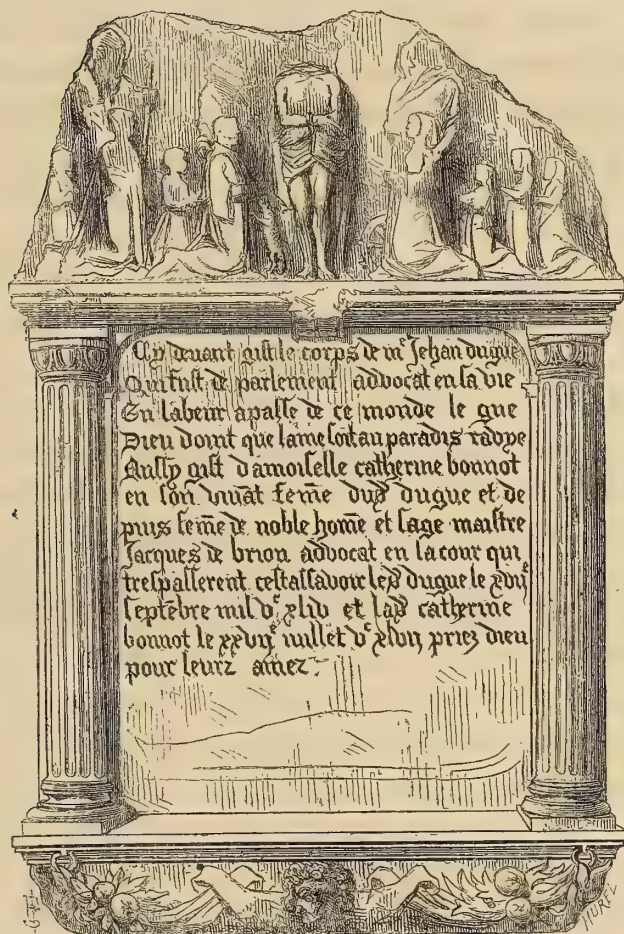 Cy devant gist le corps de mᵉ Jehan dugue
Qui fust de parlement advocat en sa vie
En labeur a passe de ce monde le gue
Dieu doint que lame soit au paradis ravye
Aussy gist damoiselle catherine bonnot
en son vivāt feme dud dugue et de
puis feme de noble home et sage maistre
Jacques de brion advocat en la cour qui
trespasserent cestassavoir led dugue le xvijᵉ
septebre mil vᶜ xliv et lad catherine
bonnot le xxvijᵉ juillet vᶜ xlvij priez dieu
pour leurz amez
MUREL